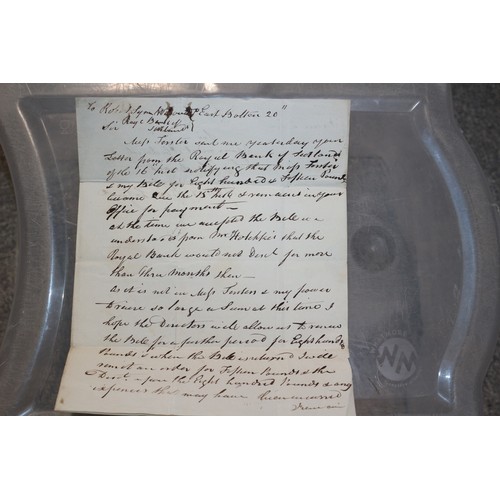 To Robt Lyon East Bolton 20"
Royl Bank of
Sir Scotland
Miss Forster sent me yesterday your
Letter from the Royal Bank of Scotland
of the 16 Inst notifying that Miss Forster
& my Bill for Eight hundred & Fifteen Pounds
became due the 15th Inst & remains in your
Office for payment—
at the time we accepted the Bill we
understood from Mr Hotchkis that the
Royal Bank would not Dist for more
than three months then—
as it is not in Miss Forsters & my power
to raise so large a Sum at this time I
hope the Directors will allow us to renew
the Bill for a further period for Eight hund
Pounds & when the Bill is returned I will
remit an order for Fifteen Pounds & the
Dist upon the Eight hundred Pounds & any
expences that may have been incurred
I remain
WN